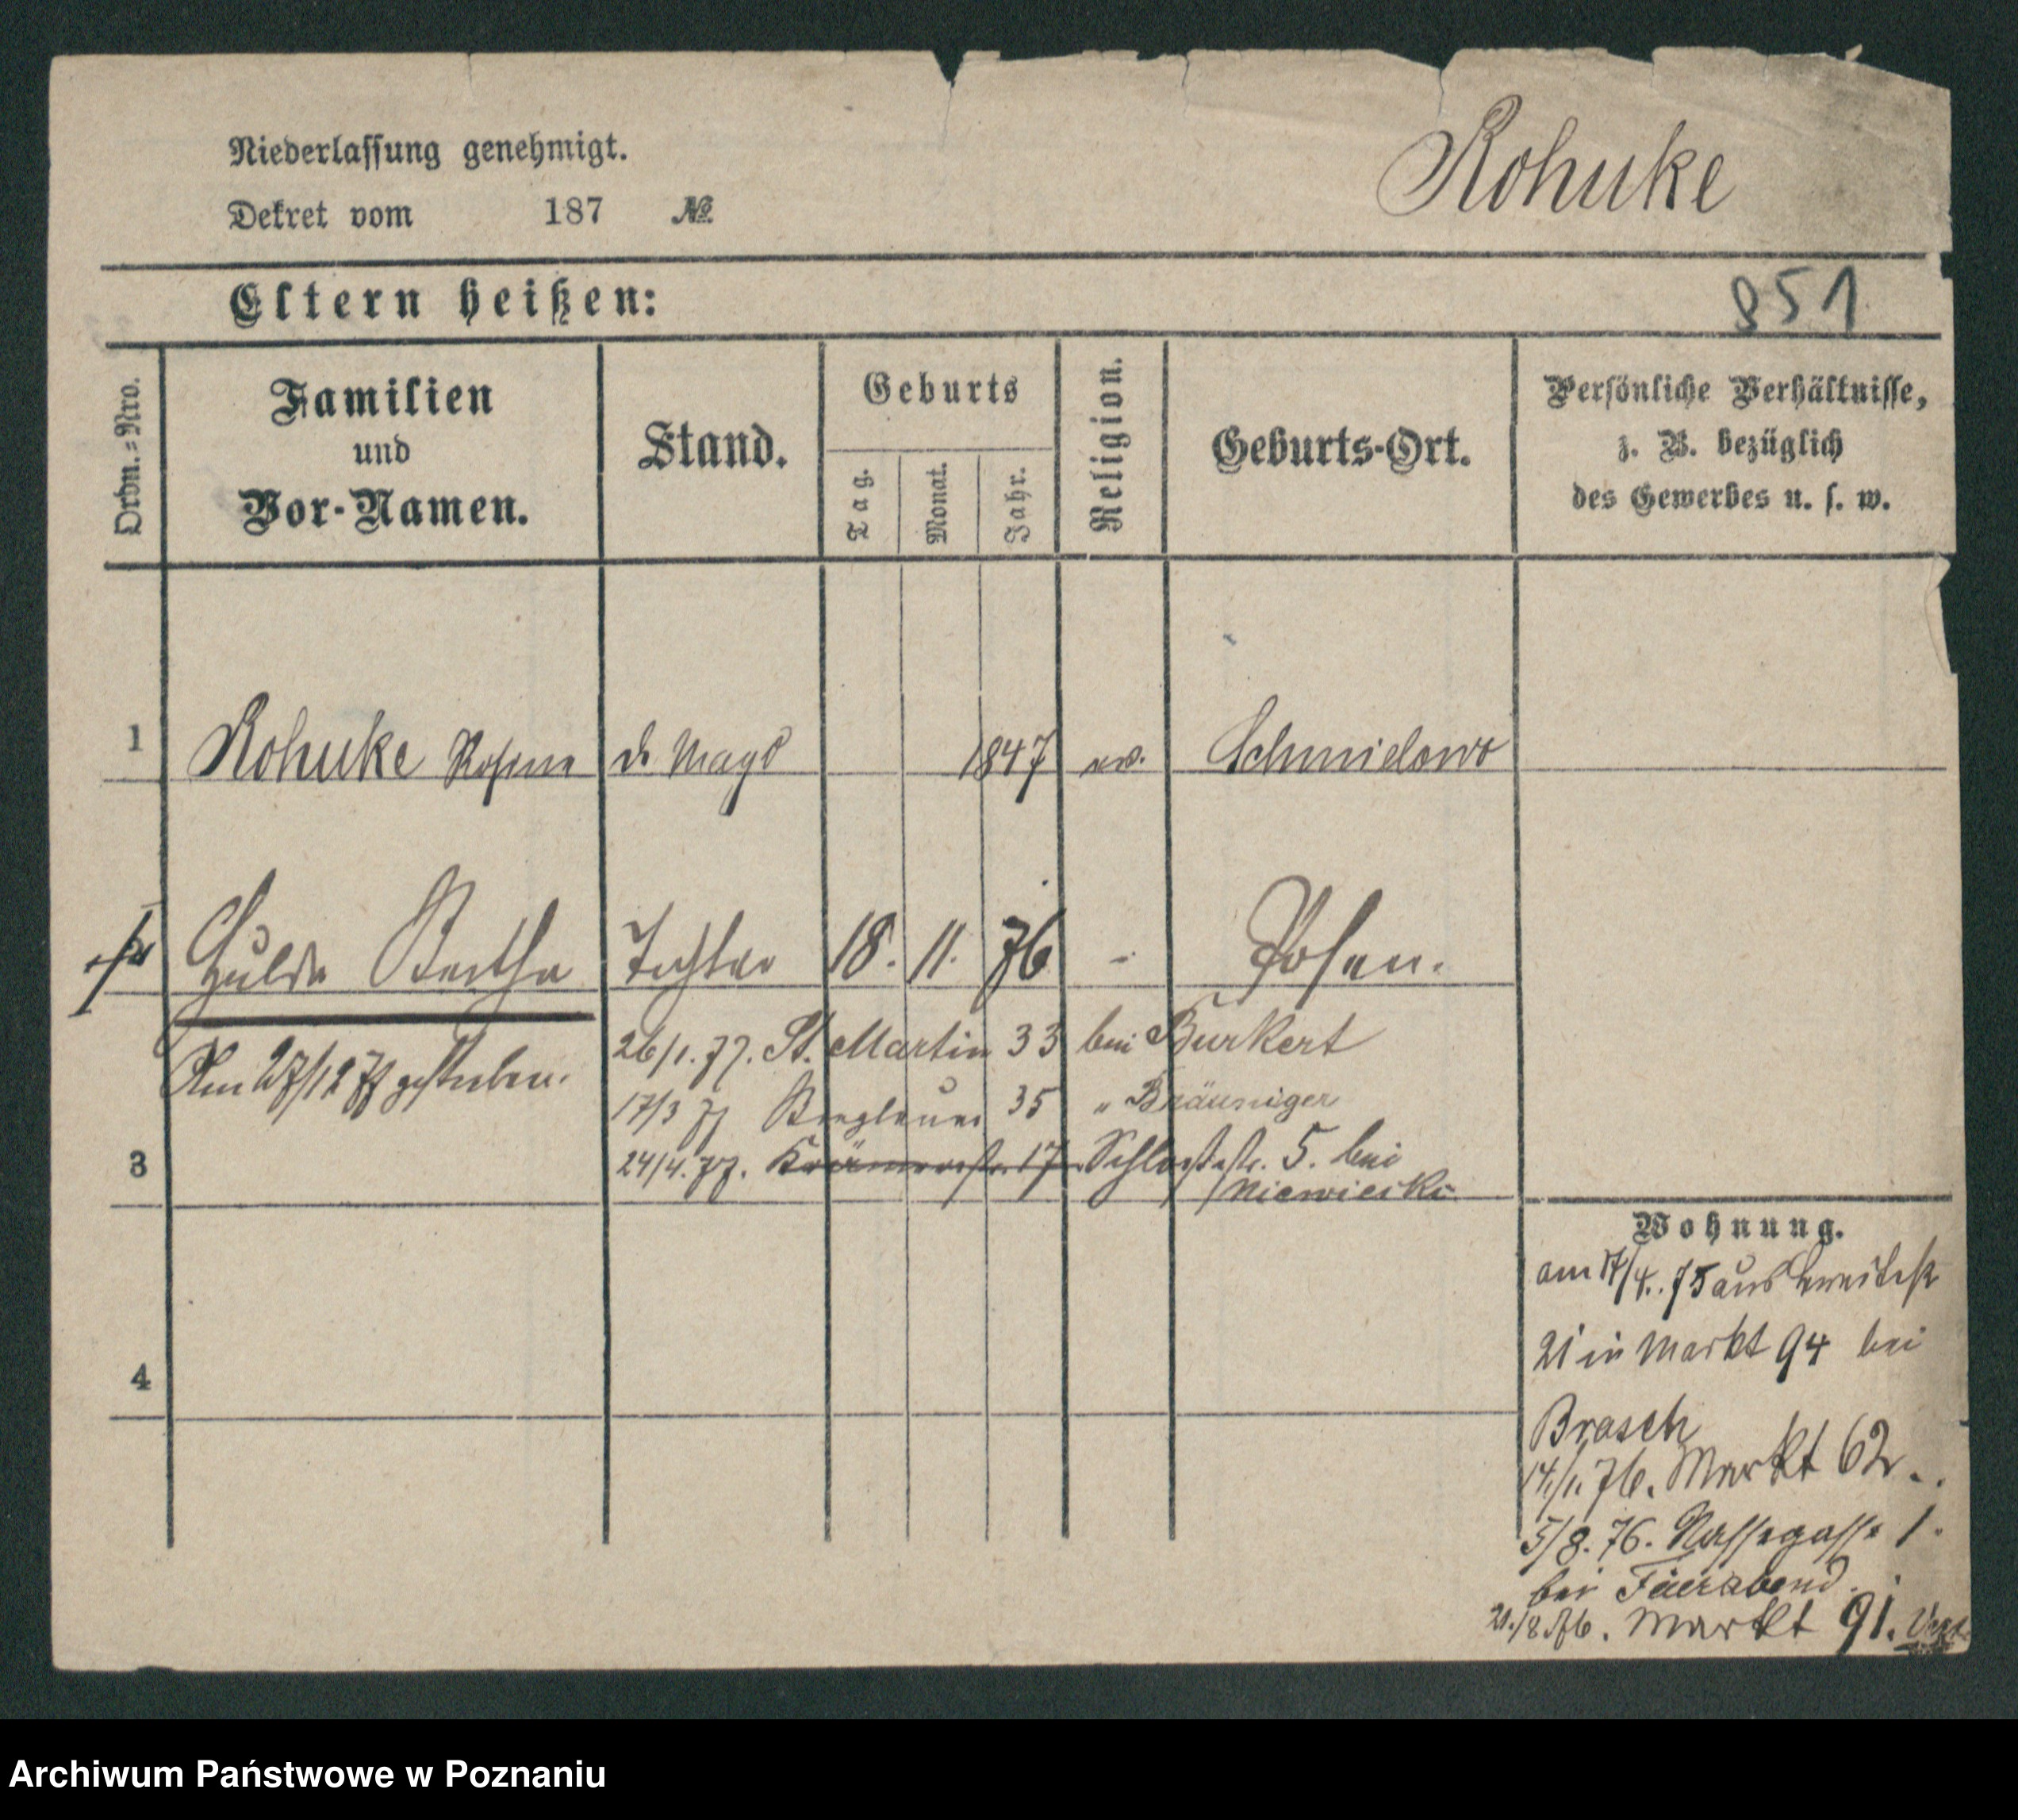 Niederlassung genehmigt.
Dekret vom 187 №
Rohnke
Eltern heißen:
851
Ordn.-Nro.
Familien
und
Vor-Namen.
Stand.
Geburts
Tag.
Monat.
Jahr.
Religion.
Geburts-Ort.
Persönliche Verhältnisse,
z. B. bezüglich
des Gewerbes u. s. w.
1 Rohnke Rosina d. Magd 1847 ev. Schmielowo
Hulda Bertha Tochter 18. 11. 76 Posen.
Am 27/12 77 gestorben.
26/1. 77. St. Martin 33 bei Burkert
17/3 77 35 " Bräuniger
3
24/4. 77. Krämerstr. 17 Schloßstr. 5. bei
4
Wohnung.
am 17/4. 75 aus Breitestr
21 in Markt 94 bei
Brasch
14/1. 76. Markt 62.
5/8. 76. Nassegasse 1.
bei Feierabend.
21./8.76. Markt 91.
Archiwum Państwowe w Poznaniu